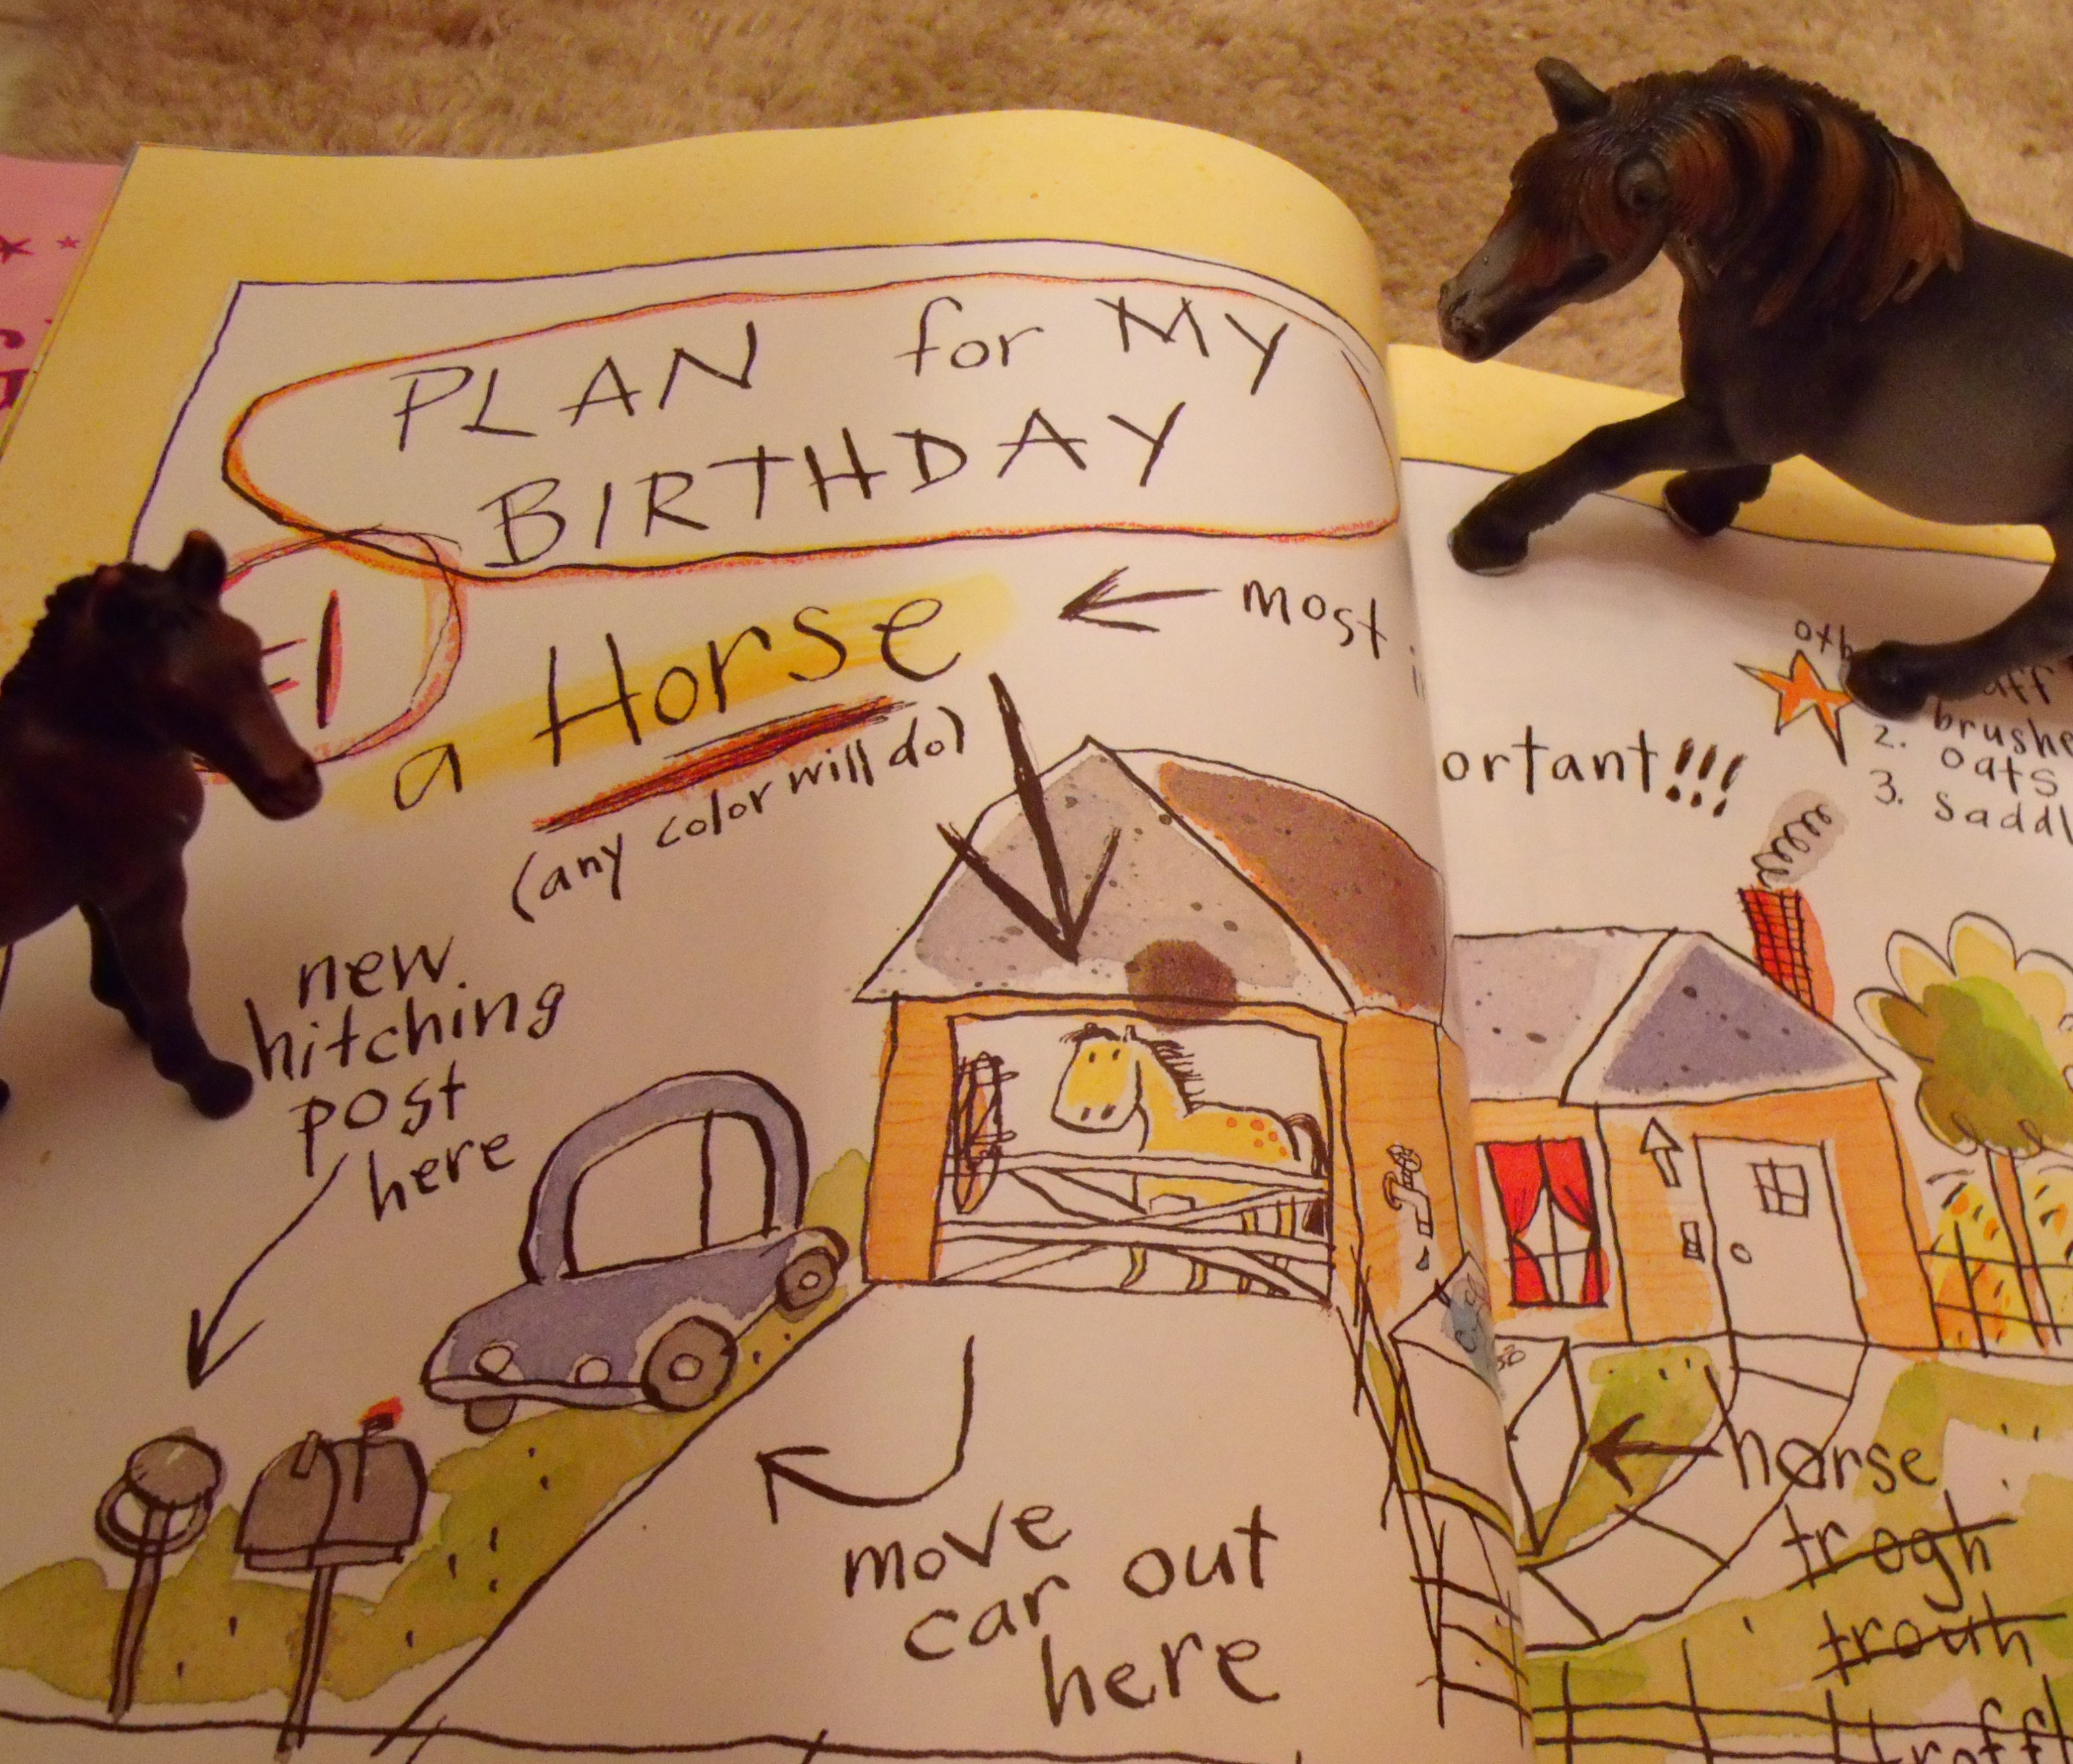 PLAN for MY
BIRTHDAY
#1
a Horse
(any color will do)
← most
ortant!!!
2. brushe
oats
3. saddl
new
hitching
post
here
move
car out
here
horse
trogh
trouh
troff